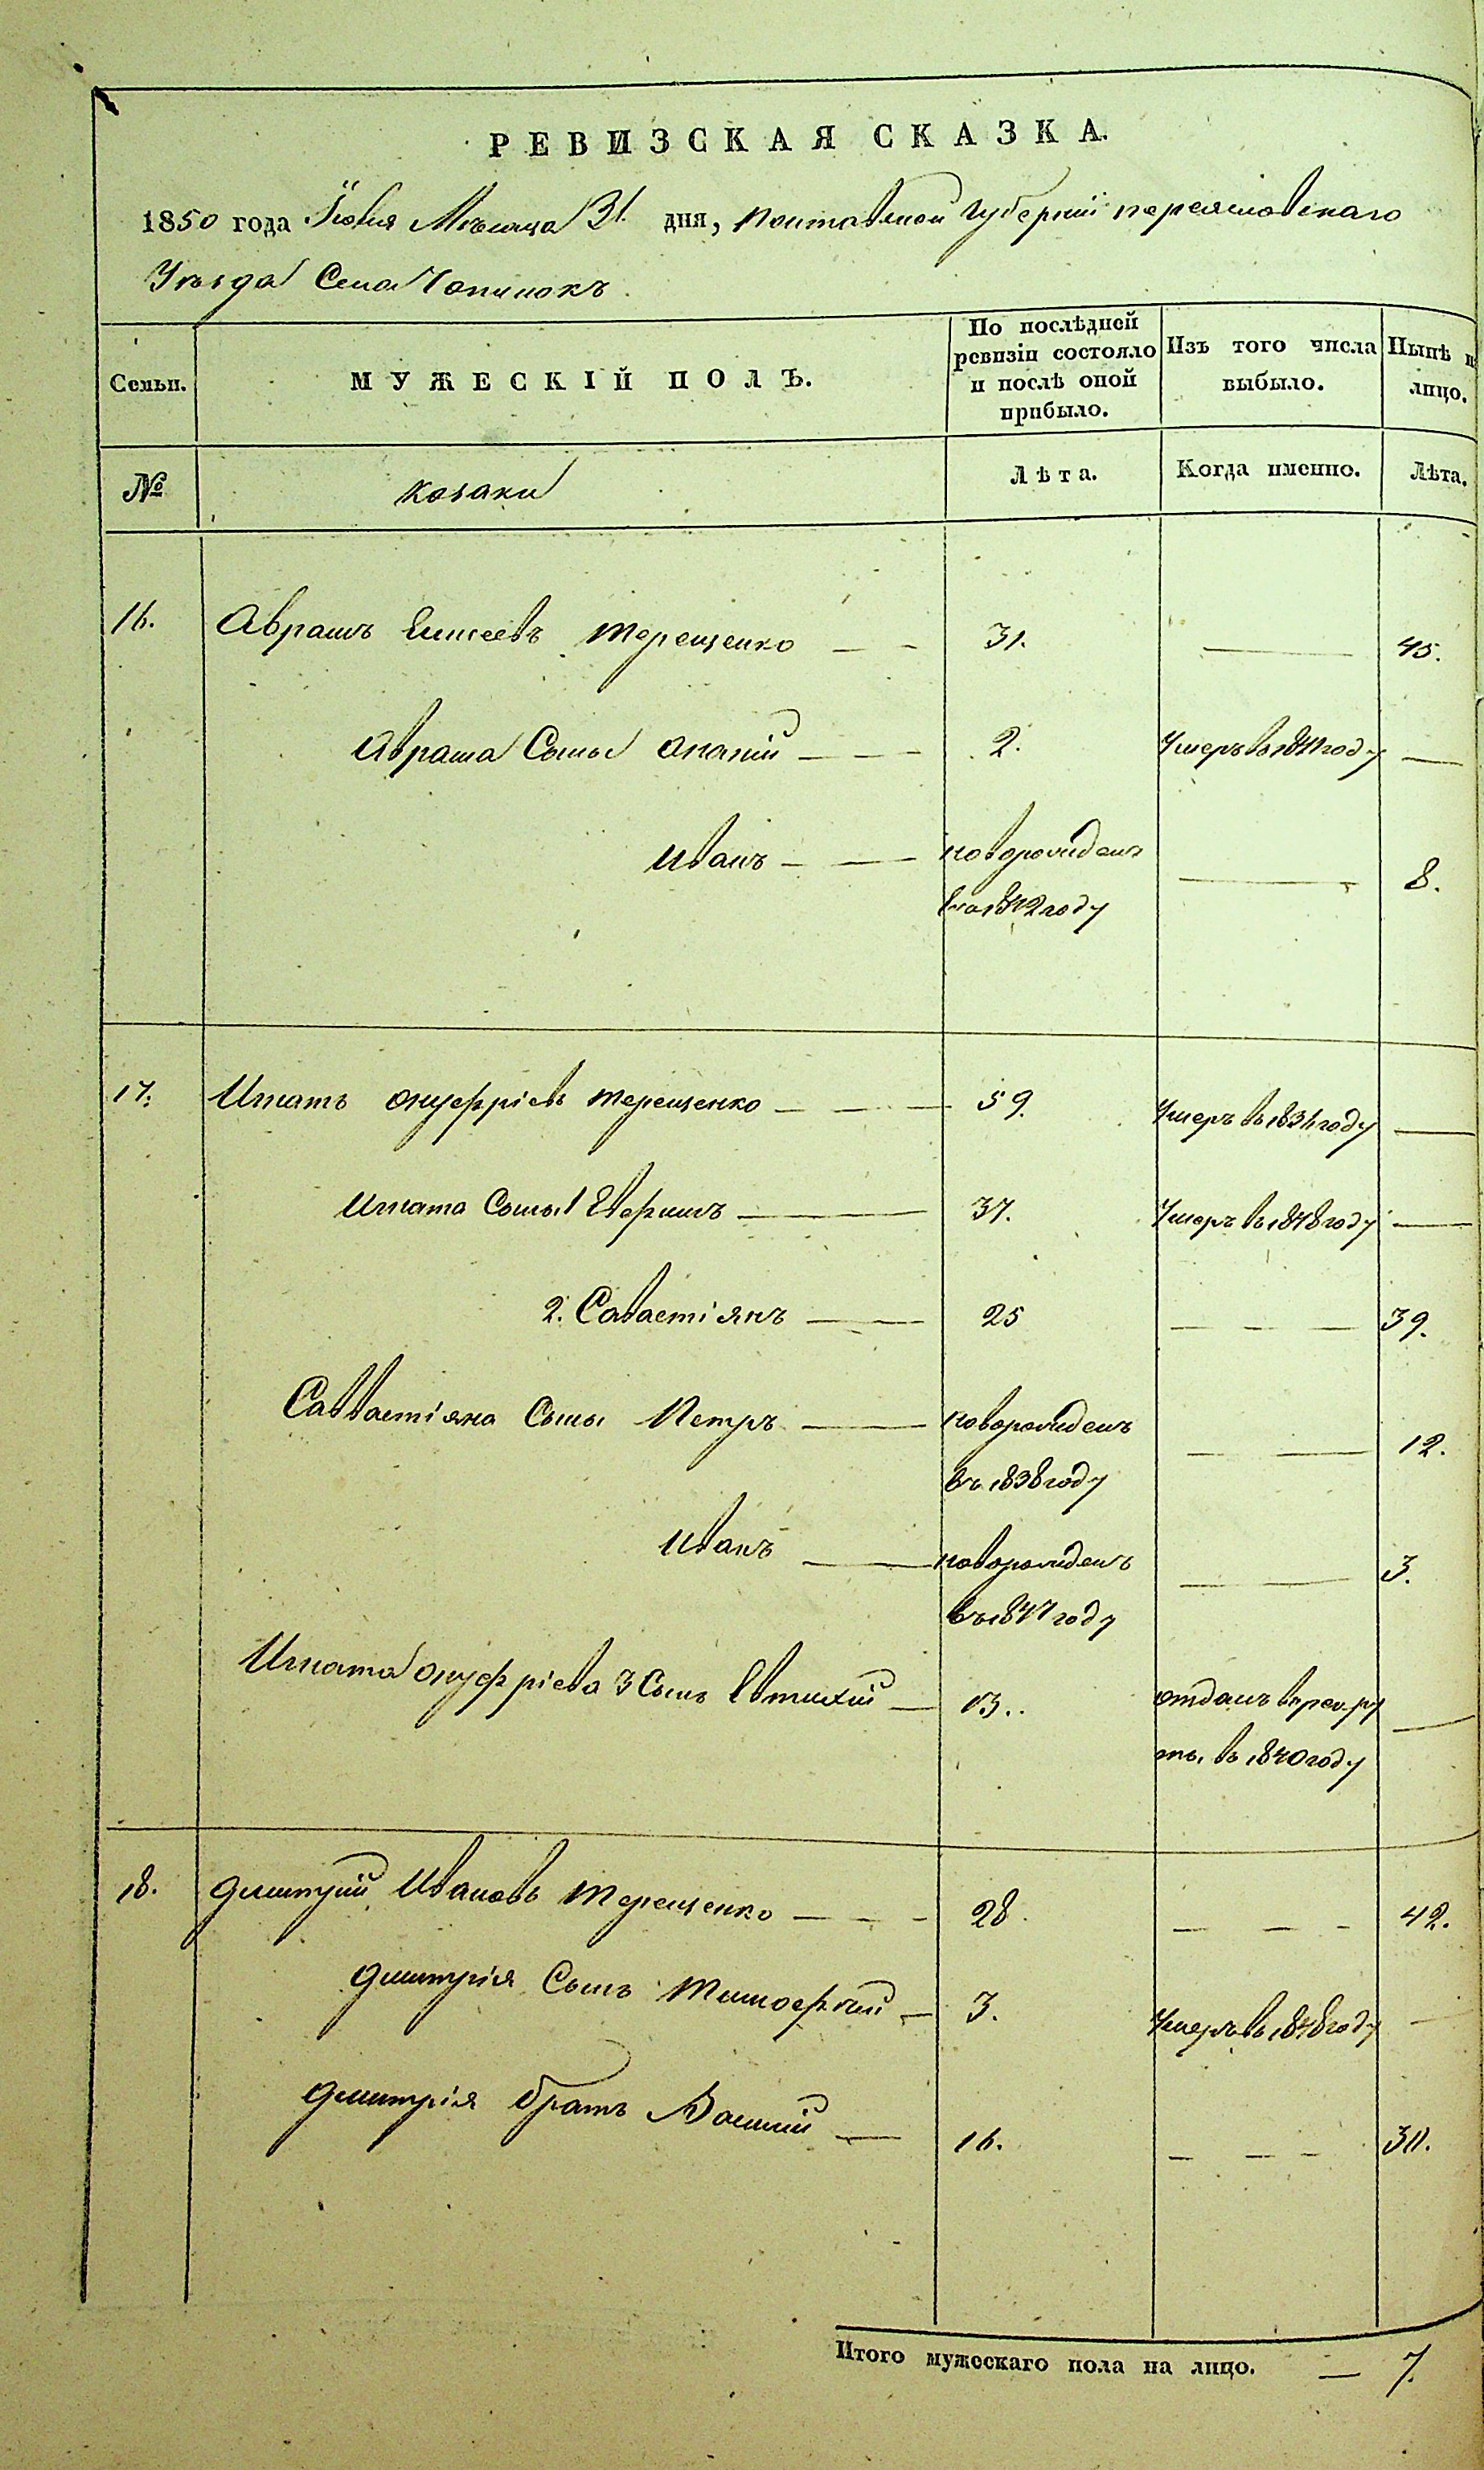 РЕВИЗСКАЯ СКАЗКА.
1850 года Іюля Мѣсяца 31 дня, Полтавской губерніи переяславскаго
Уѣзда Села Чопилокъ
Семьи.
МУЖЕСКІЙ ПОЛЪ.
По послѣдней ревизіи состояло и послѣ оной прибыло.
Изъ того числа выбыло.
Нынѣ на лицо.
№
козаки
Лѣта.
Когда именно.
Лѣта.
16. Аврамъ Елисеевъ Терещенко 31. 45.
Аврама Сыны Ананій 2. Умеръ въ 1841 году
Иванъ новорожденъ 8.
въ 1842 году
17. Игнатъ Онуфріевъ Терещенко 59. Умеръ въ 1836 году
Игната Сыны 1 Ефримъ 37. Умеръ въ 1848 году
2. Савастіянъ 25 39.
Савастіяна Сыны Петръ новорожденъ 12.
въ 1838 году
Иванъ новорожденъ 3.
въ 1847 году
Игната Онуфріева 3 Сынъ Евтихій 13. отданъ в рекру
ты въ 1840 году
18. Дмитрий Ивановъ Терещенко 28 42.
Дмитрія Сынъ Тимофѣй 3. Умеръ въ 1848 году
Дмитрія братъ Василій 16. 30.
Итого мужескаго пола на лицо. 7.